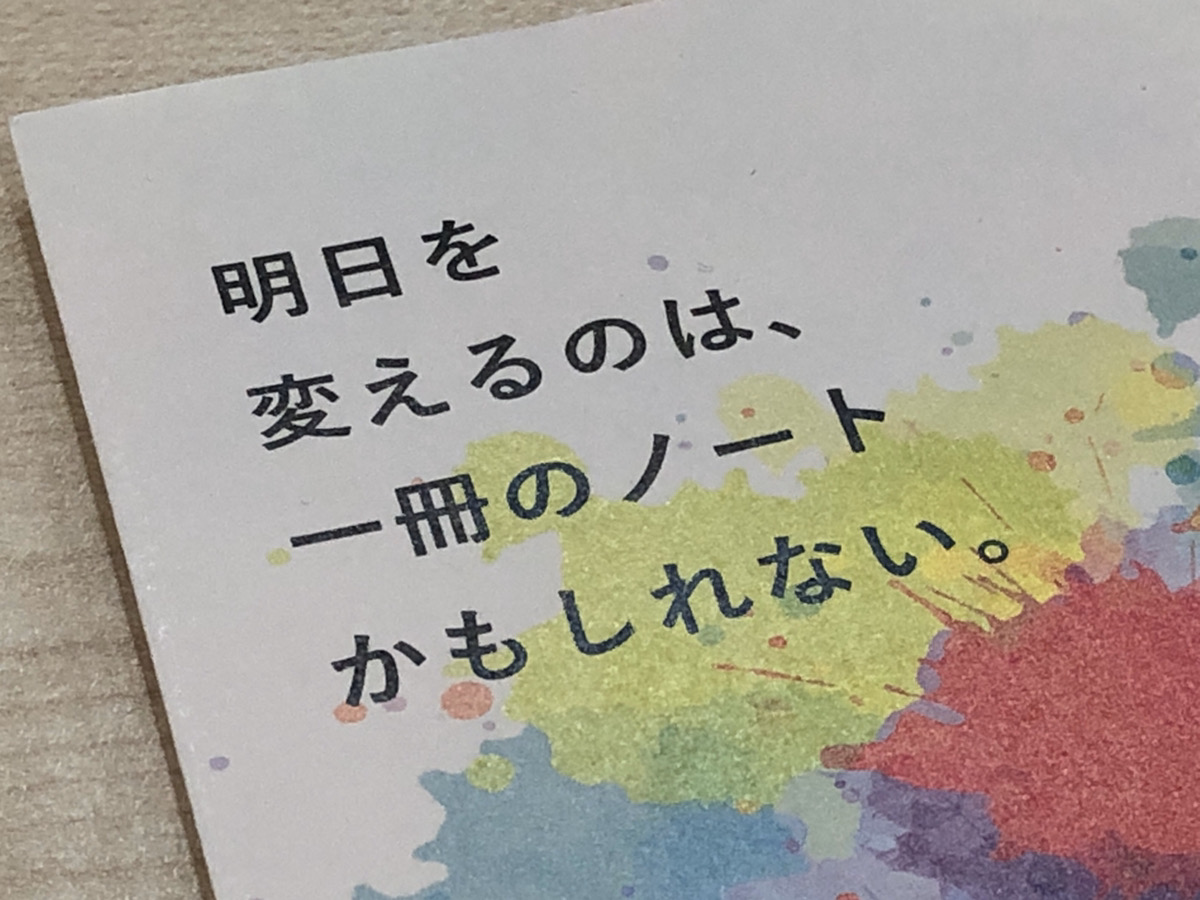 明日を
変えるのは、
一冊のノート
かもしれない。